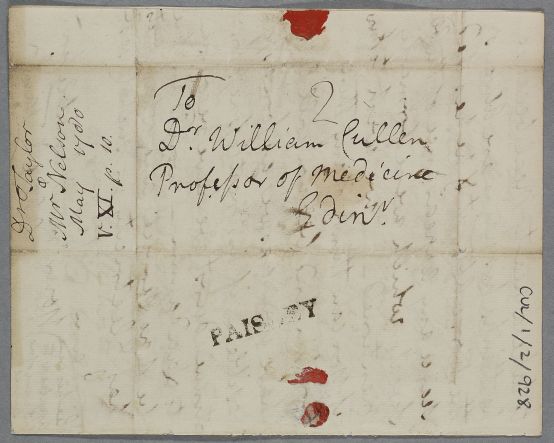 To
2
Dr. William Cullen
Professor of Medicine
Edinr.
PAISLEY
Dr Taylor
Mr Nelson
May 1780
V. XI. p. 10.
CUL/1/2/928